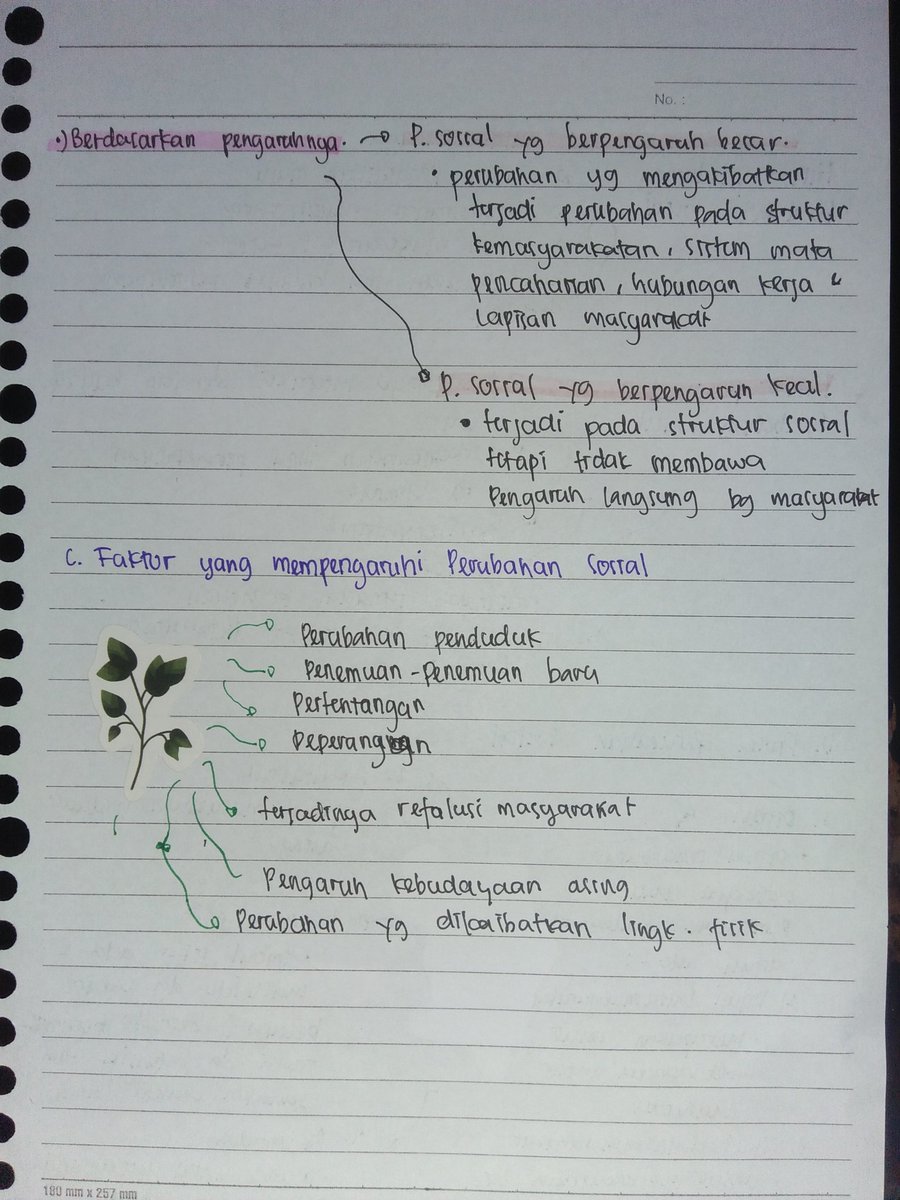 No. :
•) Berdasarkan pengaruhnya. → P. sosial yg berpengaruh besar.
• perubahan yg mengakibatkan
terjadi perubahan pada struktur
kemasyarakatan, sistem mata
pencaharian, hubungan kerja &
lapisan masyarakat
P. sosial yg berpengaruh kecil.
• terjadi pada struktur sosial
tetapi tidak membawa
pengaruh langsung bg masyarakat
C. Faktor yang mempengaruhi Perubahan sosial
Perubahan penduduk
Penemuan-penemuan baru
Pertentangan
Peperangan
terjadinya refalusi masyarakat
Pengaruh kebudayaan asing
Perubahan yg diakibatkan lingk. fisik
180 mm x 257 mm